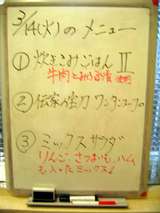 3/14(火)のメニュー
① 炊きこみごはん Ⅱ
牛肉と
② 伝家宝刀 ワンタンスープ
③ ミックスサラダ
りんご さつまいも、ハム
も入ったミックス♪